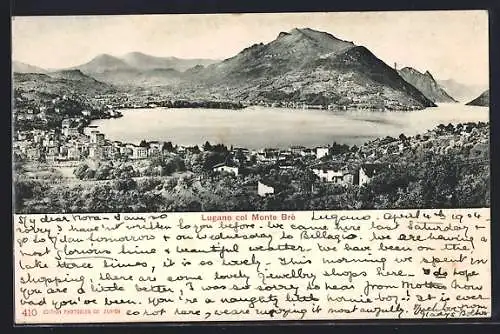 Lugano col Monte Brè
My dear Nora - I am so Lugano. April 4th 1904
sorry I haven't written to you before. We came here last Saturday &
go to Milan tomorrow & on Wednesday to Bellagio. We are having a
most glorious time & beautiful weather. We have been on the
lake three times it is so lovely. This morning we spent in
shopping, there are some lovely jewellry shops here. I do hope
you are a little better, I was so sorry to hear from Mother how
bad you've been. You're a naughty little It is ever
so hot here, we are enjoying it most awfully.
Gladys
410 EDITION PHOTOGLOB CO. ZÜRICH